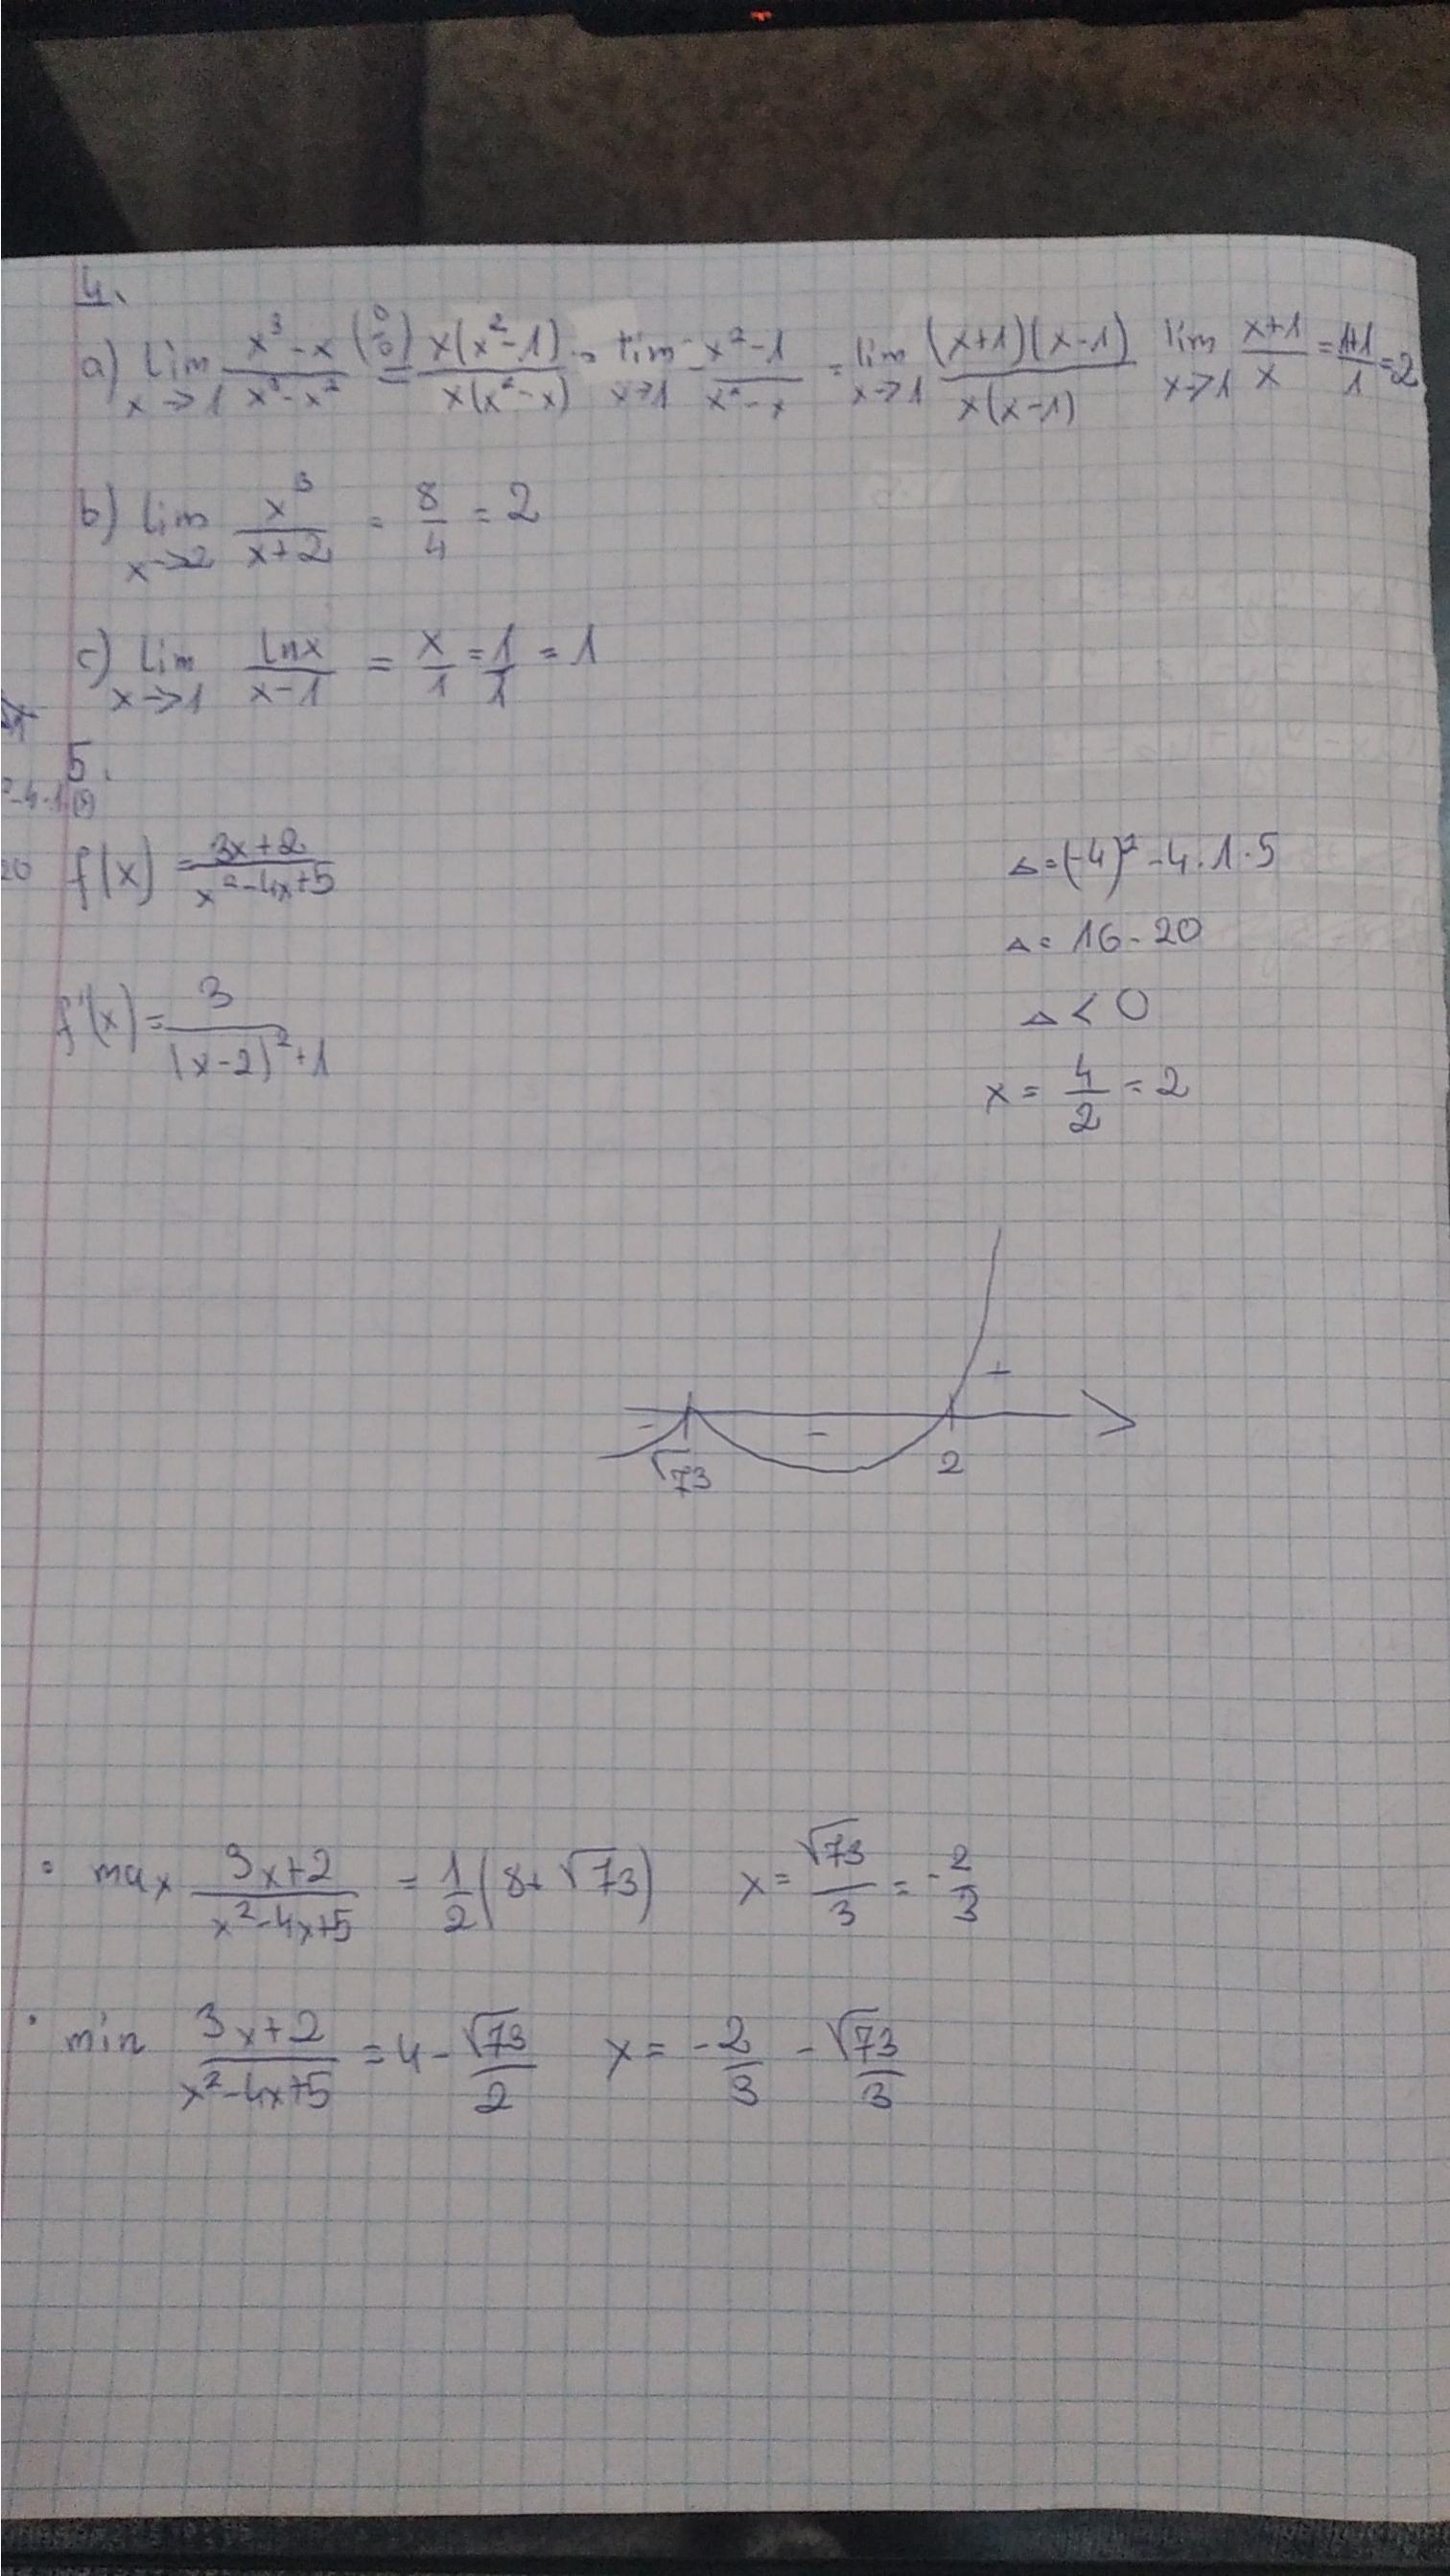 4.
a) lim x→1 (x³-x)/(x³-x²) (0/0) = x(x²-1)/x(x²-x) = lim x→1 (x²-1)/(x²-x) = lim x→1 (x+1)(x-1)/x(x-1) lim x→1 (x+1)/x = (1+1)/1 = 2
b) lim x→2 x³/(x+2) = 8/4 = 2
c) lim x→1 lnx/(x-1) = x/1 = 1/1 = 1
5.
f(x) = (3x+2)/(x²-4x+5)
Δ = (-4)² - 4·1·5
Δ = 16 - 20
f'(x) = 3/((x-2)²+1)
Δ < 0
x = 4/2 = 2
+
- -
√73 2
max (3x+2)/(x²-4x+5) = 1/2 (8+√73) x = √73/3 = -2/3
min (3x+2)/(x²-4x+5) = 4 - √73/2 x = -2/3 - √73/3